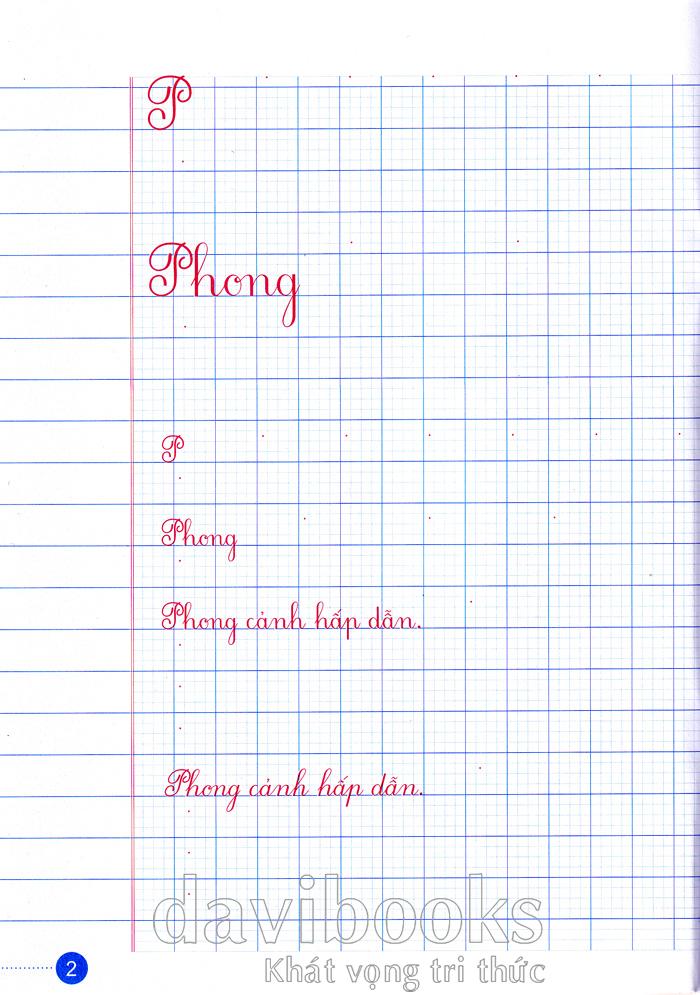 P
Phong
P
Phong
Phong cảnh hấp dẫn.
Phong cảnh hấp dẫn.
davibooks
Khát vọng tri thức
2